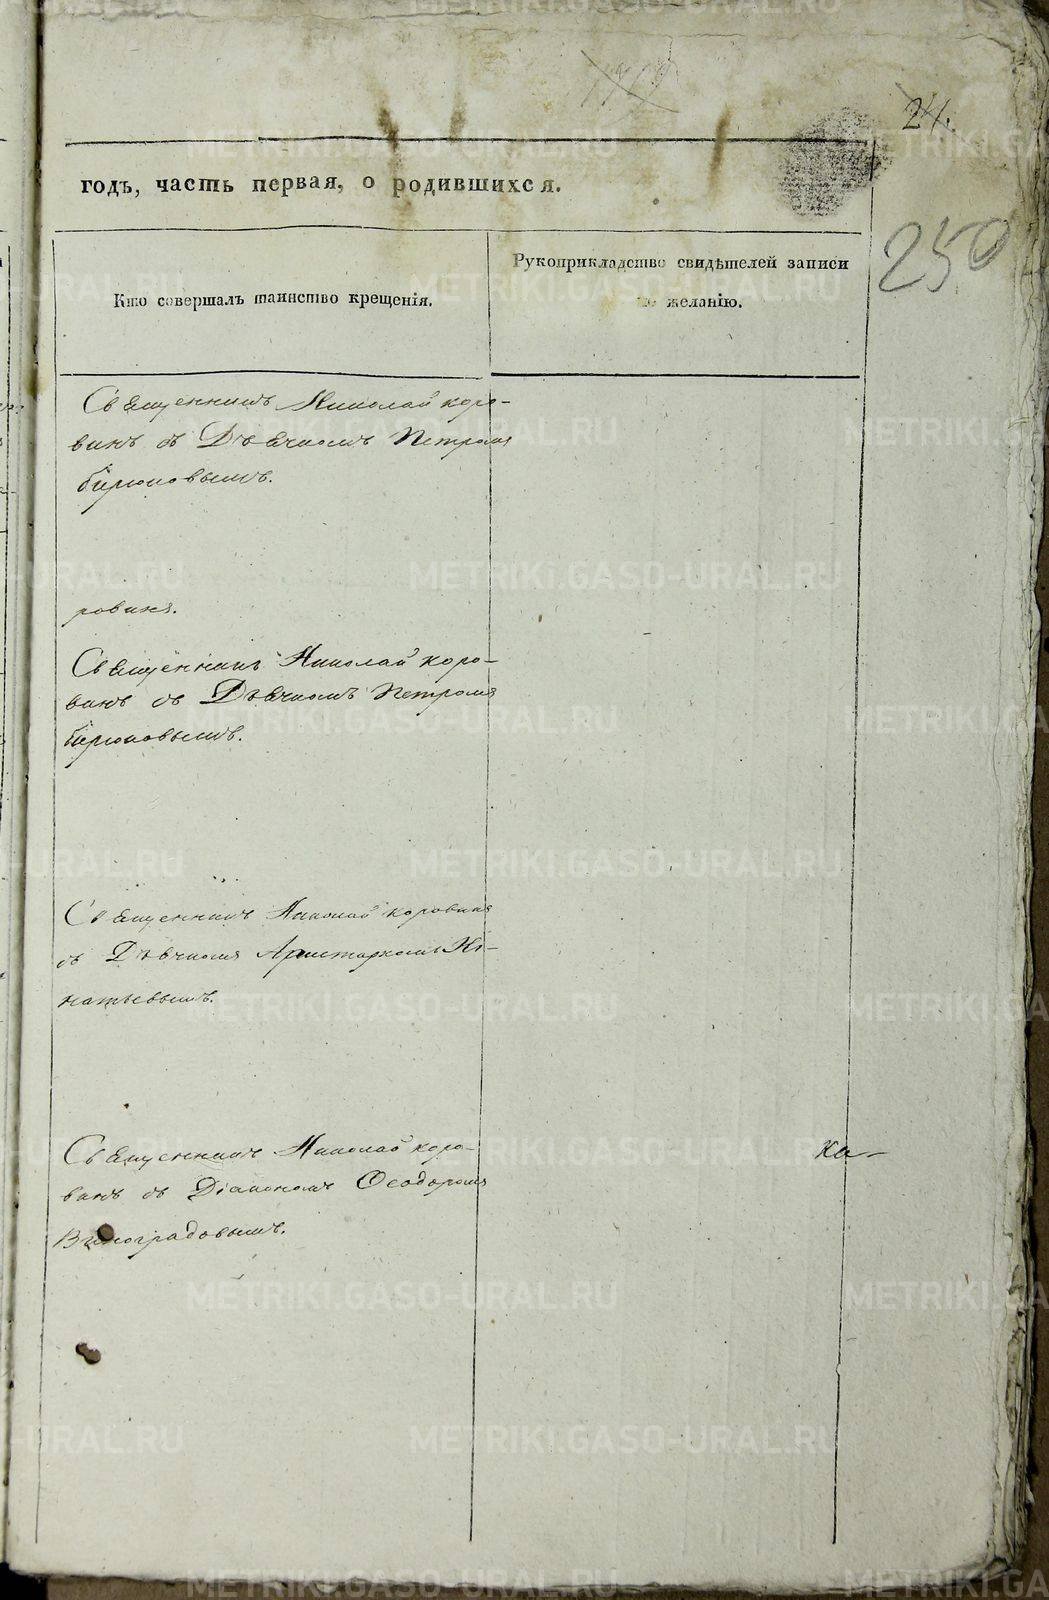 24.
годъ, часть первая, о родившихся.
250
Кто совершалъ таинство крещенія.
Рукоприкладство свидѣтелей записи
по желанію.
Священникъ Николай Коро-
винъ съ Дьячкомъ Петромъ
Бирюковымъ.
ровинъ.
Священникъ Николай Коро-
винъ съ Дьячкомъ Петромъ
Бирюковымъ.
Священникъ Николай Коровинъ
съ Дьячкомъ Аристархомъ Иг-
натьевымъ.
Священникъ Николай Коро-
винъ съ Діакономъ Ѳеодоромъ
Виноградовымъ.
Ка-
METRIKI.GASO-URAL.RU